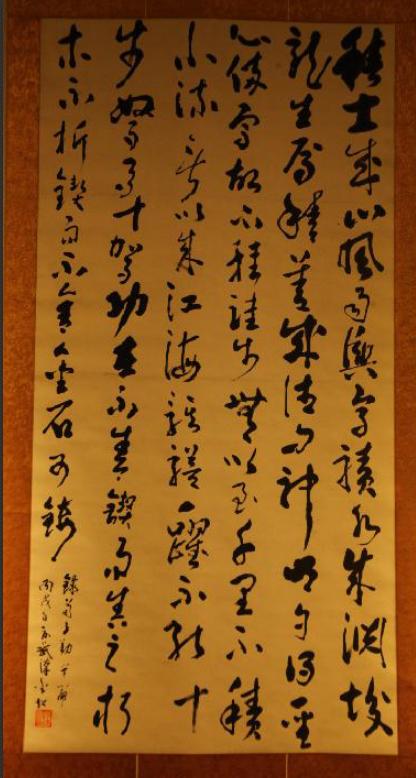 積土成山風雨興焉積水成淵蛟
龍生焉積善成德而神明自得聖
心備焉故不積跬步無以至千里不積
小流無以成江海騏驥一躍不能十
步駑馬十駕功在不舍鍥而舍之朽
木不折鍥而不舍金石可鏤
錄荀子勸學篇
丙戌年